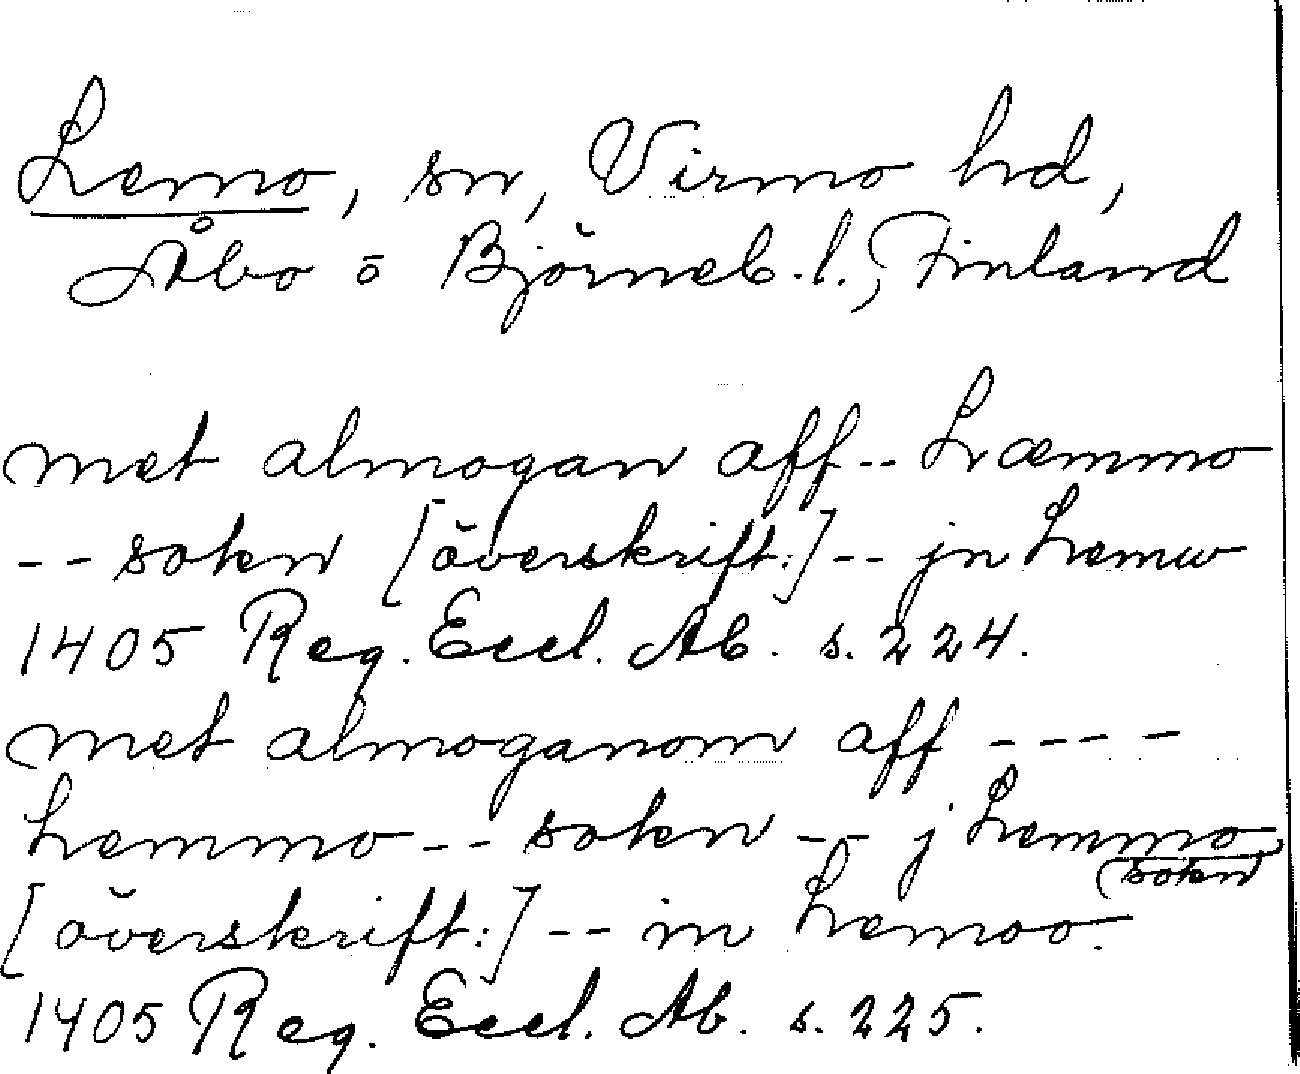 Lemo, sn, Virmo hd,
Åbo o Björneb. l., Finland
met almogan aff -- Læmmo
-- sokn [överskrift:] -- jn Lemw
1405 Reg. Eccl. Ab. s. 224.
met almoganom aff ----
Lemmo -- sokn -- j Lemmo
sokn
[överskrift:] -- in Lemoo.
1405 Reg. Eccl. Ab. s. 225.